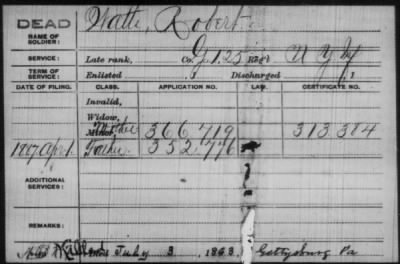 DEAD
NAME OF SOLDIER: Watts, Robert
SERVICE: Late rank, Co. G. 125 Reg't N Y Inf
TERM OF SERVICE: Enlisted , 1 Discharged , 1
DATE OF FILING. CLASS. APPLICATION NO. LAW. CERTIFICATE NO.
Invalid,
Widow,
Mother 366 719 313 384
1887 April Father 352 776
ADDITIONAL SERVICES:
REMARKS:
Killed July 3, 1863, Gettysburg Pa